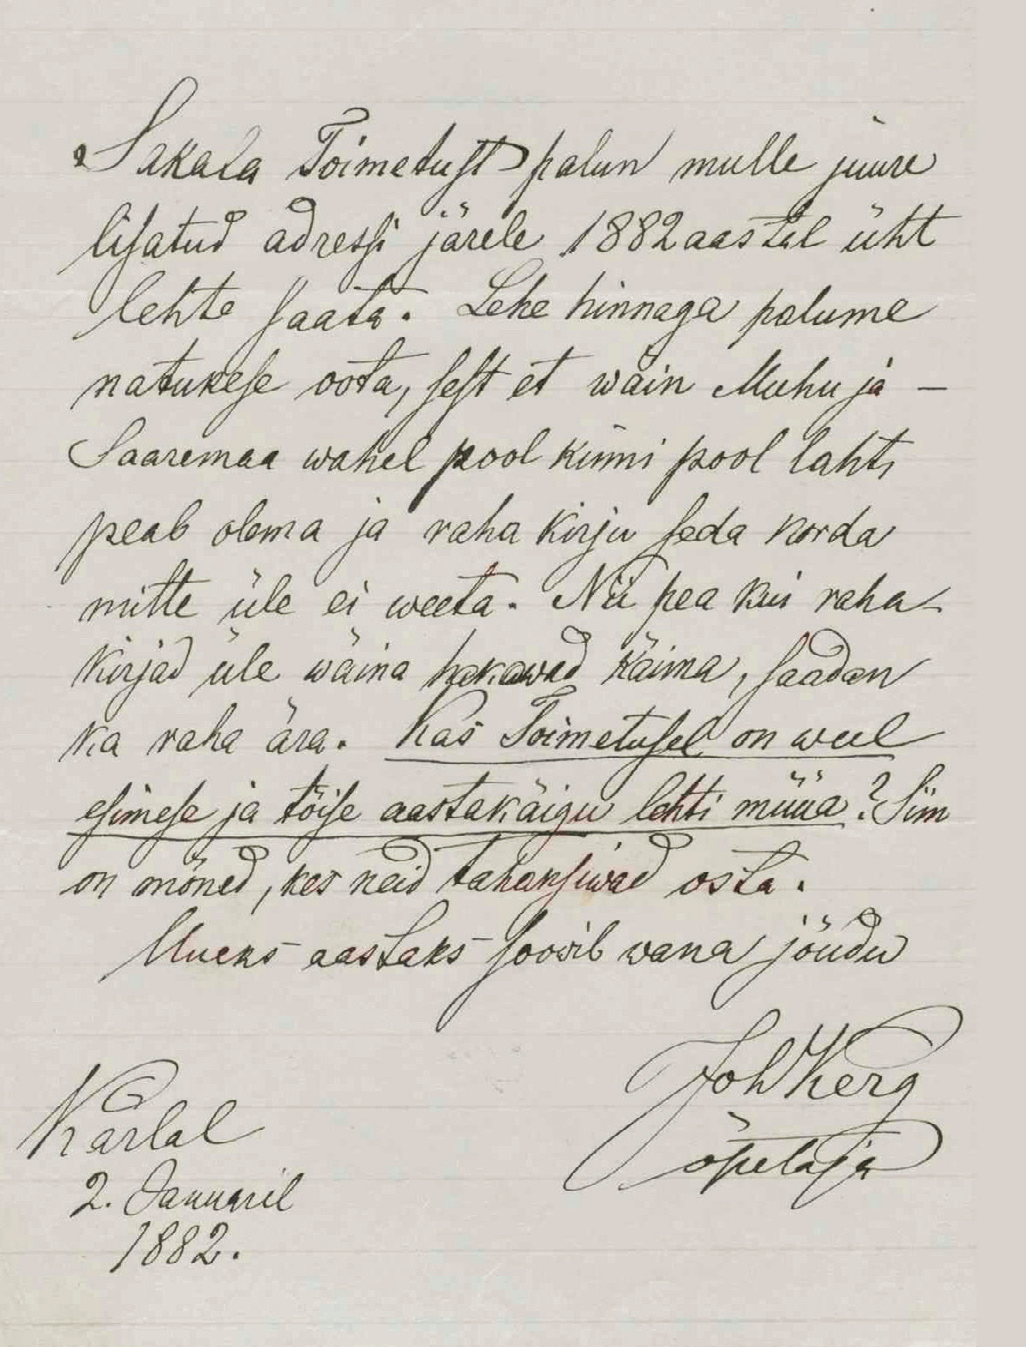 Sakala Toimetust palun mulle juure
lisatud adressi järele 1882 aastal üht
lehte saata. Lehe hinnaga palume
natukese oota, sest et wäin Muhu ja –
Saaremaa wahel pool kinni pool lahti
peab olema ja raha kirju seda korda
mitte üle ei weeta. Nii pea kui raha-
kirjad üle wäina hakawad käima, saadan
ka raha ära. Kas Toimetusel on weel
esimese ja tõise aastakäigu lehti müüa? Siin
on mõned, kes neid tahaksiwad osta.
Uueks aastaks soowib wana jõudu
Joh Kerg
õpetaja
Kärlal
2. Januaril
1882.